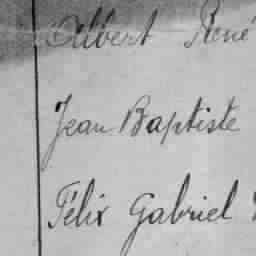 Albert René
Jean Baptiste
Félix Gabriel